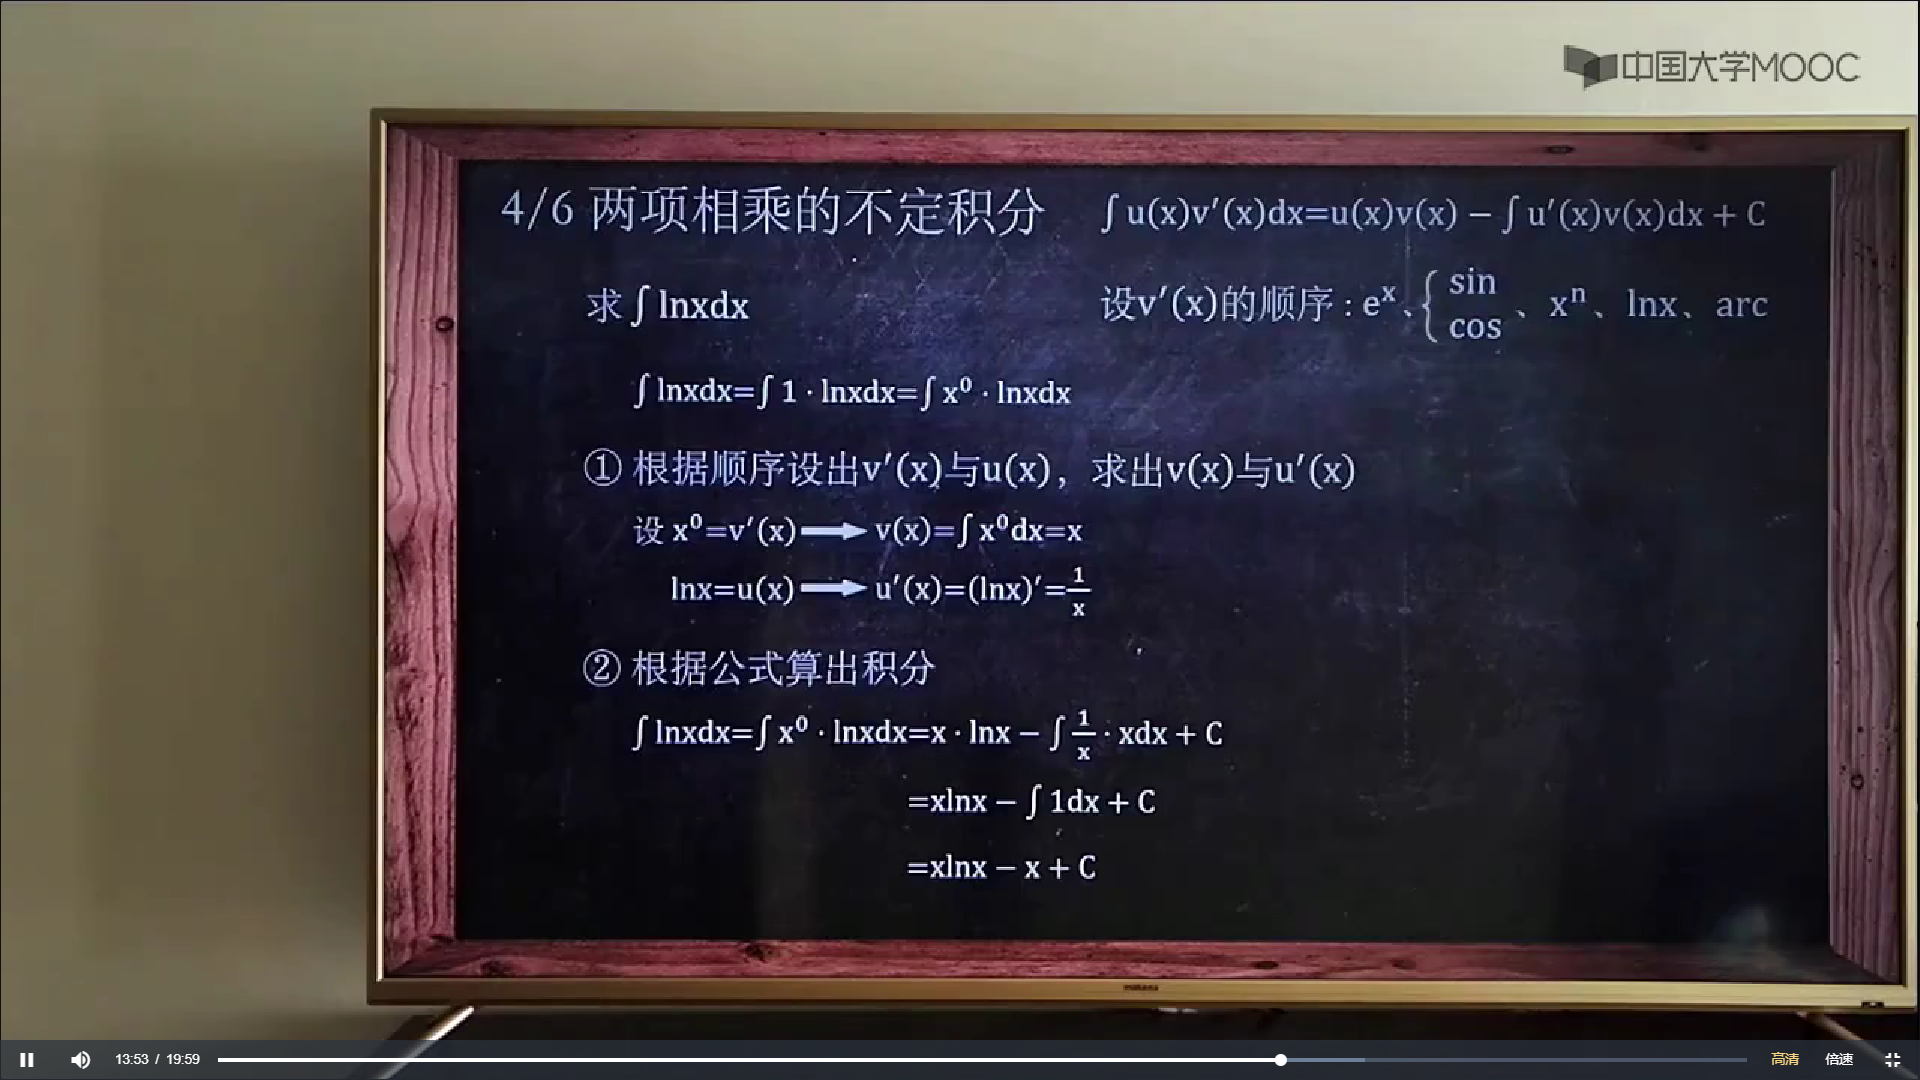 中国大学MOOC
4/6 两项相乘的不定积分
∫ u(x)v′(x)dx=u(x)v(x) − ∫ u′(x)v(x)dx + C
求 ∫ lnxdx
设v′(x)的顺序 : eˣ、{ sin cos 、xⁿ、lnx、arc
∫ lnxdx=∫ 1 · lnxdx=∫ x⁰ · lnxdx
① 根据顺序设出v′(x)与u(x)，求出v(x)与u′(x)
设 x⁰=v′(x) ➡ v(x)=∫ x⁰dx=x
lnx=u(x) ➡ u′(x)=(lnx)′=1/x
② 根据公式算出积分
∫ lnxdx=∫ x⁰ · lnxdx=x · lnx − ∫ 1/x · xdx + C
=xlnx − ∫ 1dx + C
=xlnx − x + C
13:53 / 19:59
高清
倍速